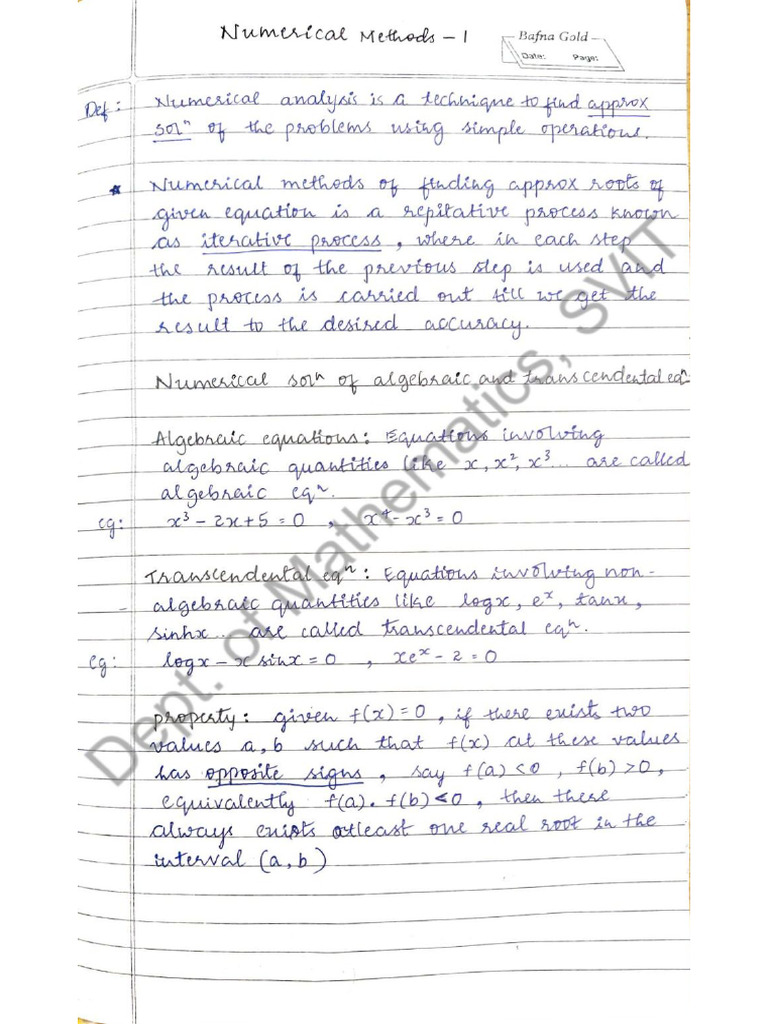 Numerical Methods - 1
Bafna Gold
Date: Page:
Def: Numerical analysis is a technique to find approx
solⁿ of the problems using simple operations.
* Numerical methods of finding approx roots of
given equation is a repitative process known
as iterative process, where in each step
the result of the previous step is used and
the process is carried out till we get the
result to the desired accuracy.
Numerical solⁿ of algebraic and transcendental eqⁿ
Algebraic equations: Equations involving
algebraic quantities like x, x², x³... are called
algebraic eqⁿ.
eg: x³ - 2x + 5 = 0 , x⁴ - x³ = 0
Transcendental eqⁿ: Equations involving non-
algebraic quantities like logx, eˣ, tanx,
sinhx... are called transcendental eqⁿ.
eg: logx - x sinx = 0 , xeˣ - 2 = 0
property: given f(x) = 0, if there exists two
values a, b such that f(x) at these values
has opposite signs, say f(a) < 0, f(b) > 0,
equivalently f(a). f(b) < 0, then there
always exists atleast one real root in the
interval (a, b)
Dept. of Mathematics, SVIT